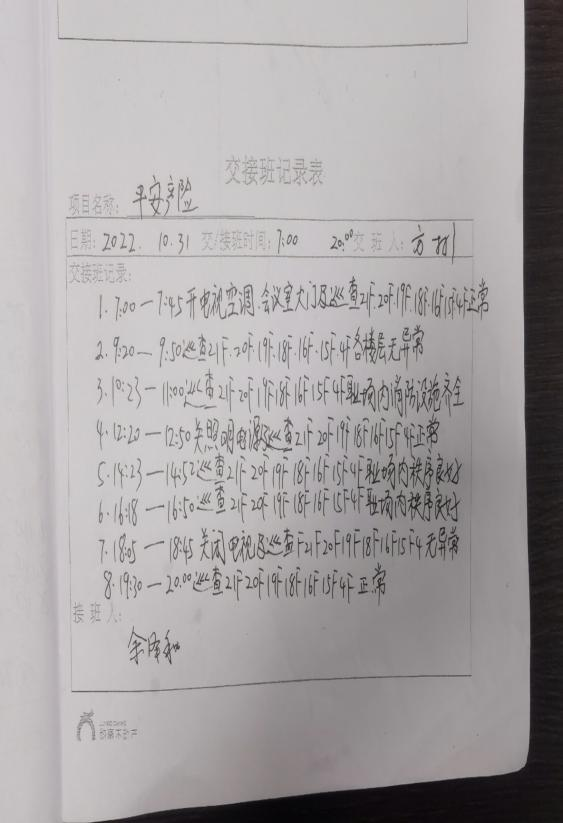 交接班记录表
项目名称: 平安产险
日期: 2022. 10.31 交/接班时间: 7:00 20:00 交班人: 方
交接班记录:
1. 7:00—7:45开电视空调.会议室大门及巡查21F.20F.19F.18F.16F15F4F正常
2. 9:20—9:50巡查21F.20F.19F.18F.16F.15F.4F各楼层无异常
3. 10:23—11:00巡查21F20F19F18F16F15F4F职场内消防设施齐全
4. 12:20—12:50关照明电源及巡查21F20F19F18F16F15F4F正常
5. 14:23—14:52巡查21F20F19F18F16F15F4F职场内秩序良好
6. 16:18—16:50巡查21F20F19F18F16F15F4F职场内秩序良好
7. 18:05—18:45关闭电视及巡查F21F20F19F18F16F15F4无异常
8. 19:30—20:00巡查21F20F19F18F16F15F4F正常
接班人:
余泽和
不动产